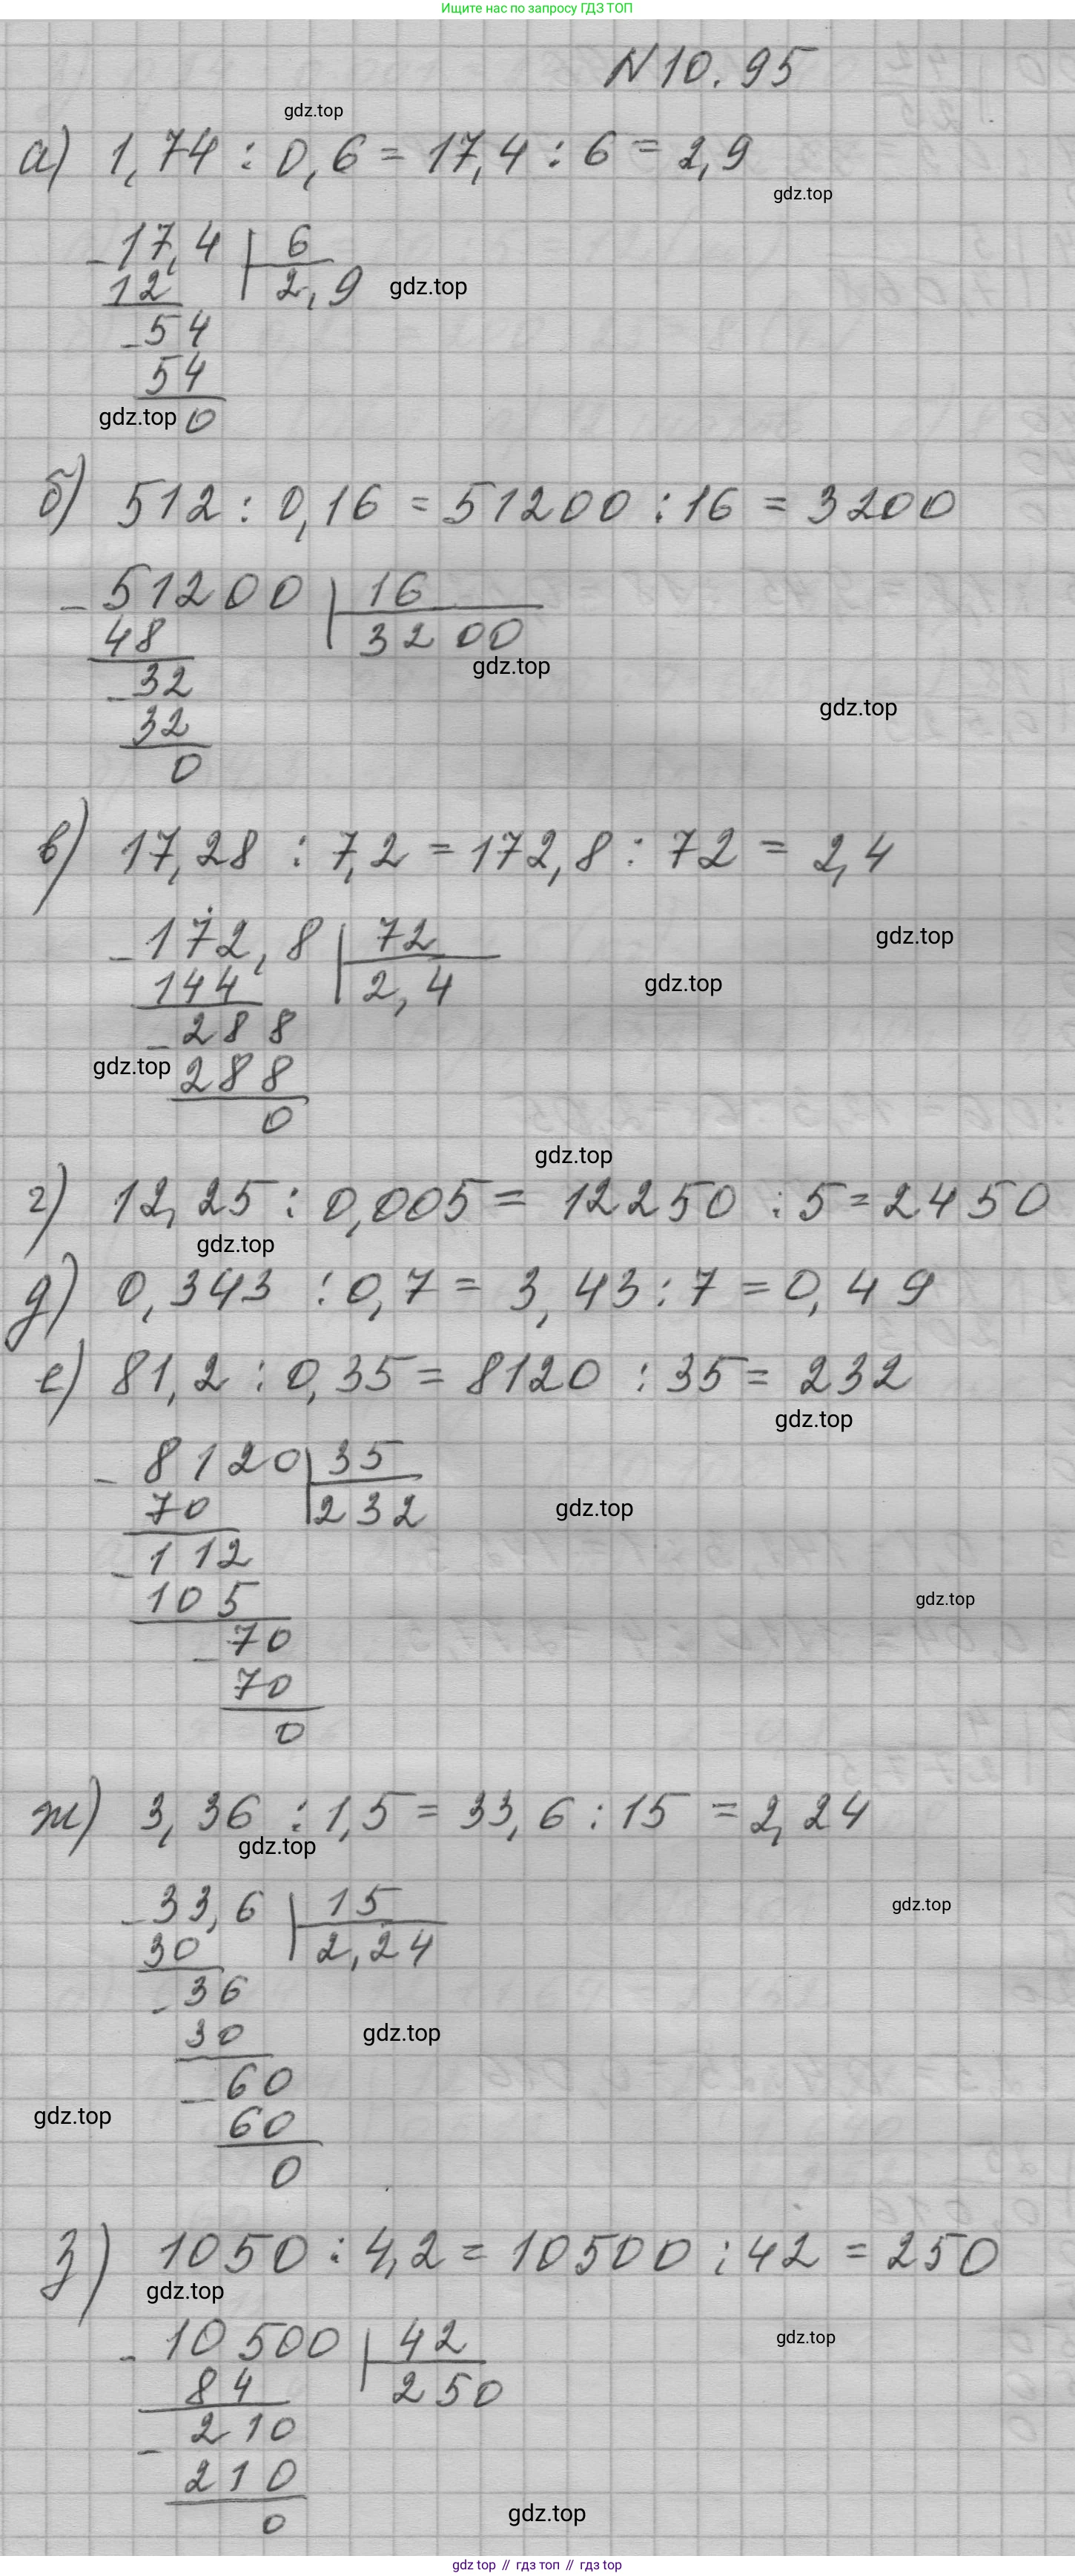 Ищите нас по запросу ГДЗ ТОП
N 10.95
gdz.top
а) 1,74 : 0,6 = 17,4 : 6 = 2,9
gdz.top
- 17,4 | 6
12 | 2,9 gdz.top
- 54
54
gdz.top 0
б) 512 : 0,16 = 51200 : 16 = 3200
- 51200 | 16
48 | 3200
gdz.top
- 32
gdz.top
32
0
в) 17,28 : 7,2 = 172,8 : 72 = 2,4
- 172,8 | 72
gdz.top
144 | 2,4 gdz.top
- 288
gdz.top 288
0
gdz.top
г) 12,25 : 0,005 = 12250 : 5 = 2450
gdz.top
д) 0,343 : 0,7 = 3,43 : 7 = 0,49
е) 81,2 : 0,35 = 8120 : 35 = 232
gdz.top
- 8120 | 35
70 | 232 gdz.top
- 112
105
gdz.top
- 70
70
0
ж) 3,36 : 1,5 = 33,6 : 15 = 2,24
gdz.top
- 33,6 | 15
gdz.top
30 | 2,24
- 36
30 gdz.top
- 60
gdz.top 60
0
з) 1050 : 4,2 = 10500 : 42 = 250
gdz.top
- 10500 | 42
gdz.top
84 | 250
- 210
210
0 gdz.top
gdz top // гдз топ // gdz top